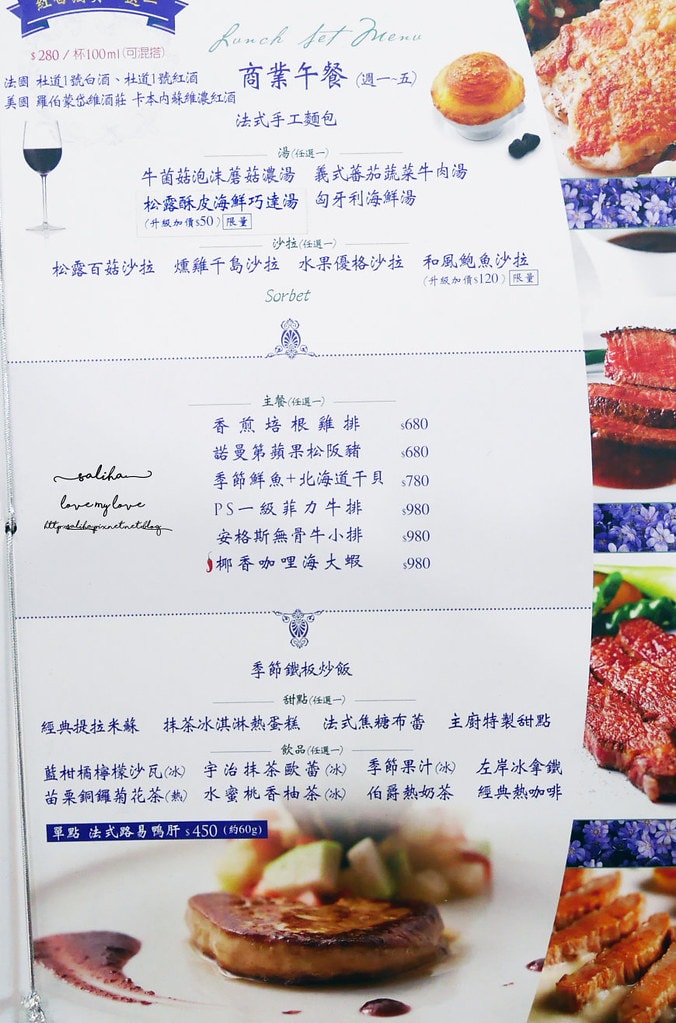 $280 / 杯100ml (可混搭)
法國 杜道1號白酒、杜道1號紅酒
美國 羅伯蒙岱維酒莊 卡本內蘇維濃紅酒
Lunch Set Menu
商業午餐 (週一~五)
法式手工麵包
湯(任選一)
牛菌菇泡沫蘑菇濃湯 義式蕃茄蔬菜牛肉湯
松露酥皮海鮮巧達湯 匈牙利海鮮湯
(升級加價$50) 限量
沙拉(任選一)
松露百菇沙拉 燻雞千島沙拉 水果優格沙拉 和風鮑魚沙拉
(升級加價$120) 限量
Sorbet
主餐(任選一)
香煎培根雞排 $680
諾曼第蘋果松阪豬 $680
季節鮮魚+北海道干貝 $780
PS一級菲力牛排 $980
安格斯無骨牛小排 $980
椰香咖哩海大蝦 $980
saliha
love my love
季節鐵板炒飯
甜點(任選一)
經典提拉米蘇 抹茶冰淇淋熱蛋糕 法式焦糖布蕾 主廚特製甜點
飲品(任選一)
藍柑橘檸檬沙瓦(冰) 宇治抹茶歐蕾(冰) 季節果汁(冰) 左岸冰拿鐵
苗栗銅鑼菊花茶(熱) 水蜜桃香柚茶(冰) 伯爵熱奶茶 經典熱咖啡
單點 法式路易鴨肝 $450 (約60g)